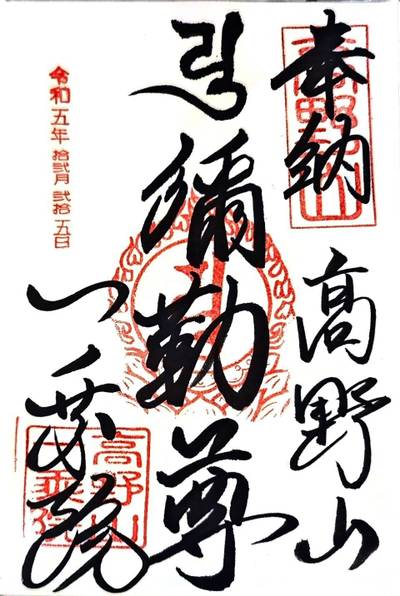 奉納
高野山
彌勒尊
一乗院
令和五年 拾弐月 弐拾五日
高野山
一乘院